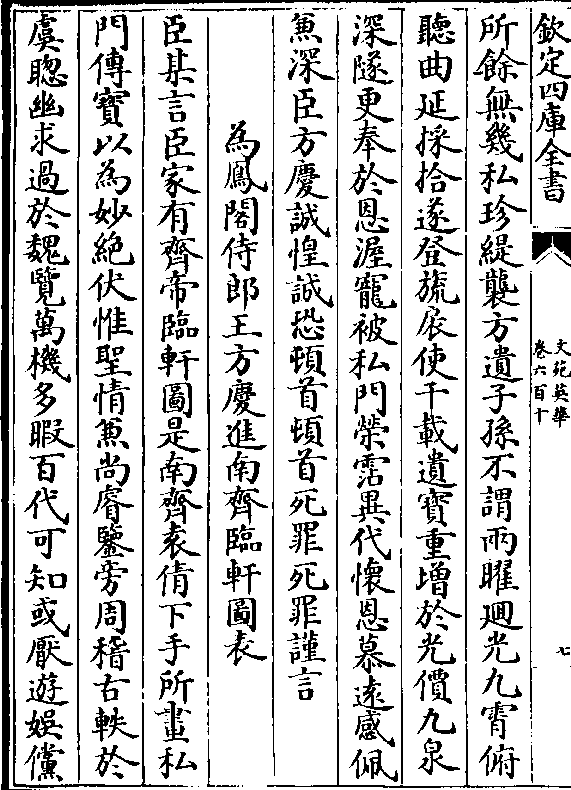 欽定四庫全書
文苑英華
卷六百十
七
所餘無幾私珍緹襲方遺子孫不謂兩曜迴光九霄俯
聽曲延採拾遂登旒扆使千載遺寶重增於光價九泉
深隧更奉於恩渥寵被私門榮霑異代懷恩慕遠感佩
兼深臣方慶誠惶誠恐頓首頓首死罪死罪謹言
為鳳閣侍郎王方慶進南齊臨軒圖表
臣某言臣家有齊帝臨軒圖是南齊袁倩下手所畫私
門傳寶以為妙絶伏惟聖情兼尚睿鑒旁周稽古軼於
虞聰幽求過於魏覽萬機多暇百代可知或厭遊娛儻